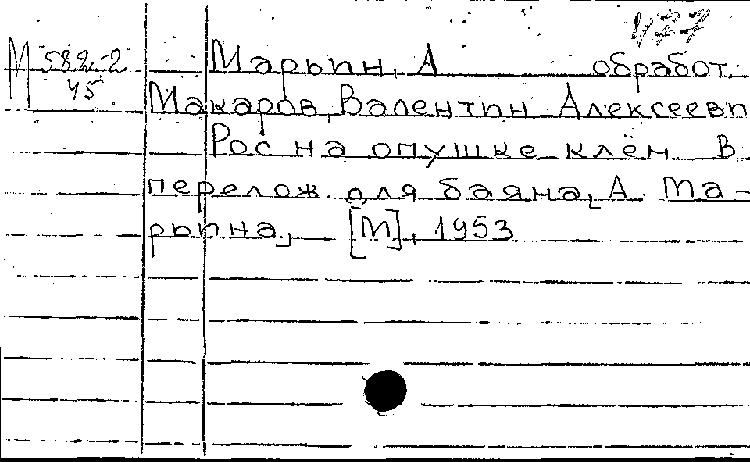 477
М 582-2
45
Марьин, А обработ.
Макаров, Валентин Алексееви
Рос на опушке клён В
перелож для баяна, А Ма-
рьина, [М], 1953